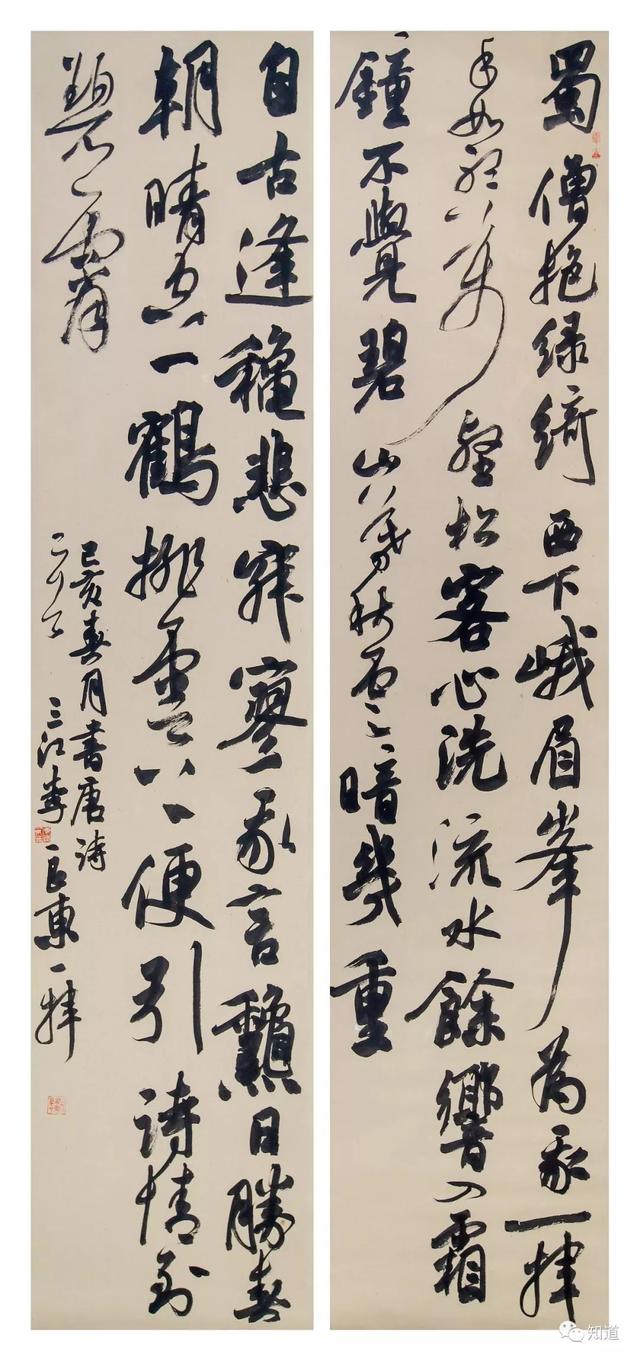 蜀僧抱緑綺西下峨眉峯為我一揮
手如聽萬壑松客心洗流水餘響入霜
鐘不覺碧山暮秋雲暗幾重
自古逢穐悲寂寥我言龝日勝春
朝晴空一鶴排雲上便引詩情到
碧霄
己亥春月書唐詩
二首 三江李良東揮
知道